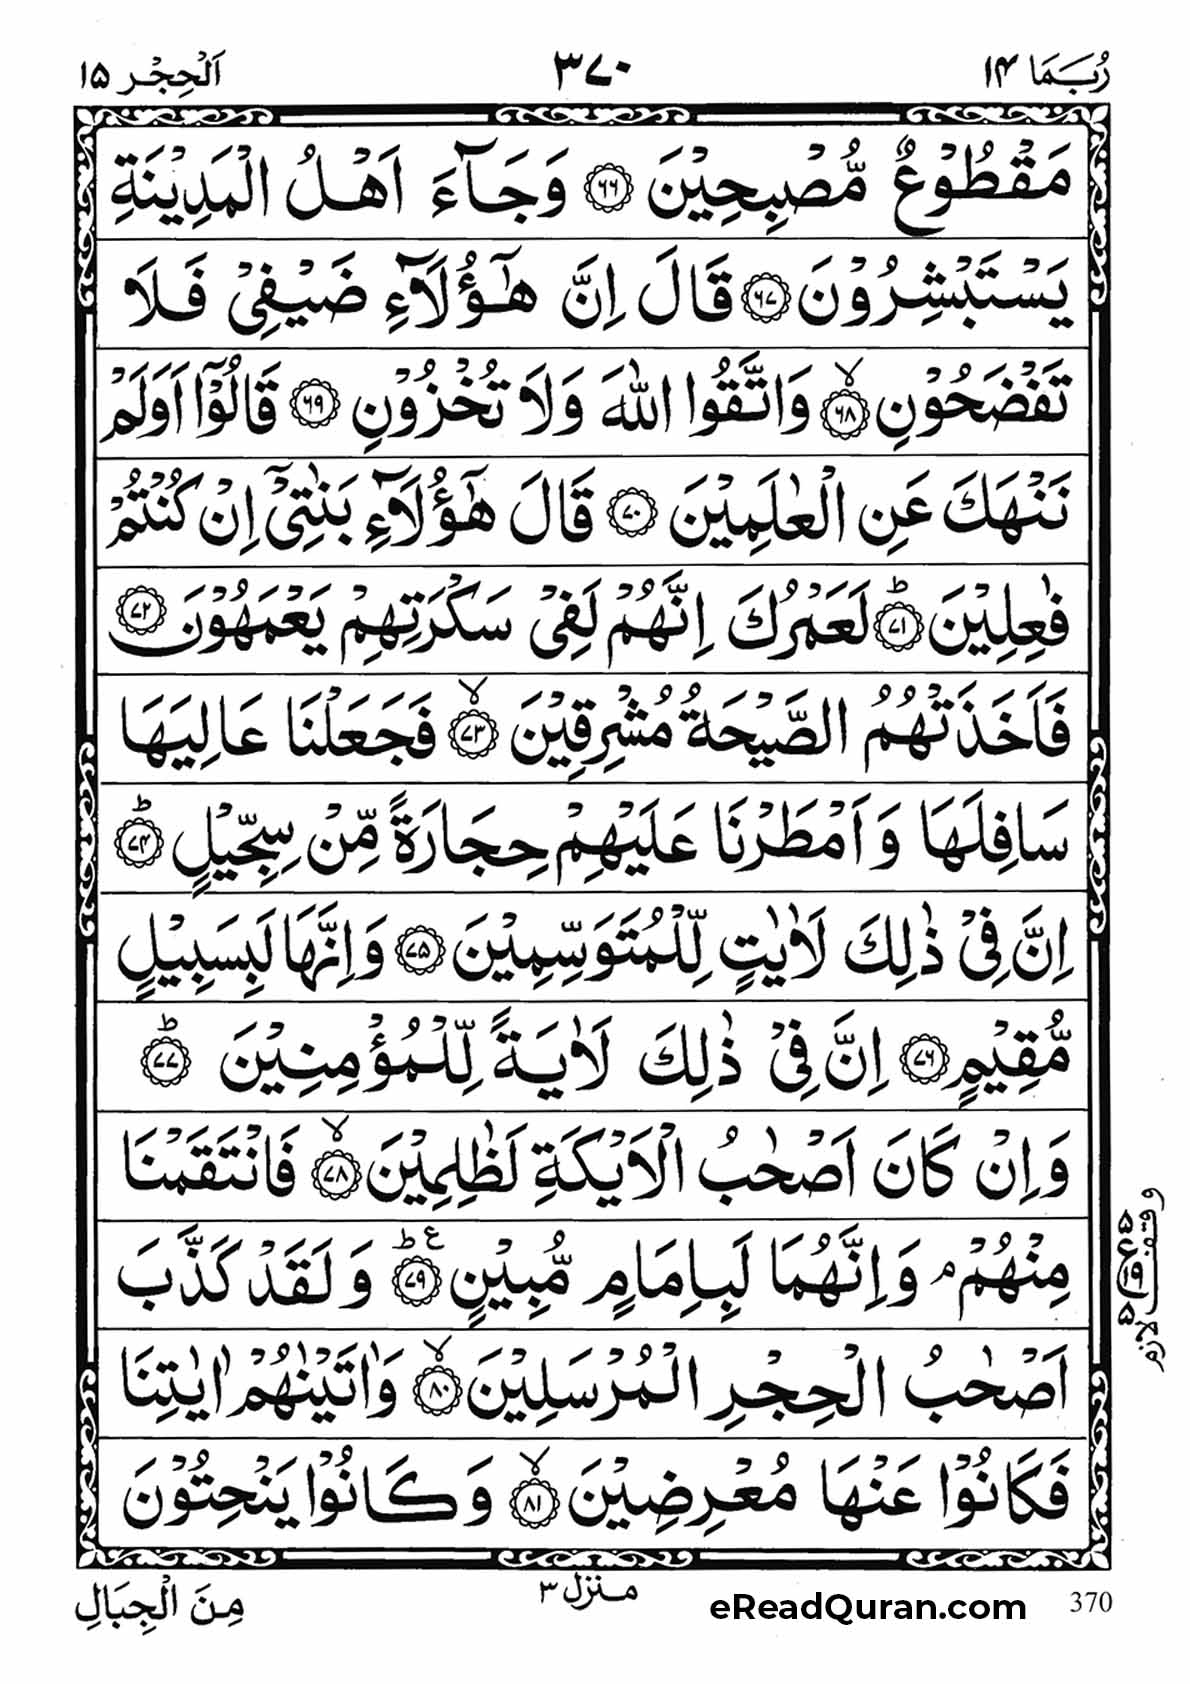 رُبَمَا ۱۴
۳۷۰
اَلْحِجْر ۱۵
مَقْطُوْعٌ مُّصْبِحِيْنَ ﴿۶۶﴾ وَجَآءَ اَهْلُ الْمَدِيْنَةِ
يَسْتَبْشِرُوْنَ ﴿۶۷﴾ قَالَ اِنَّ هٰٓؤُلَآءِ ضَيْفِيْ فَلَا
تَفْضَحُوْنِ ۙ﴿۶۸﴾ وَاتَّقُوا اللّٰهَ وَلَا تُخْزُوْنِ ﴿۶۹﴾ قَالُوْٓا اَوَلَمْ
نَنْهَكَ عَنِ الْعٰلَمِيْنَ ﴿۷۰﴾ قَالَ هٰٓؤُلَآءِ بَنٰتِيْٓ اِنْ كُنْتُمْ
فٰعِلِيْنَ ؕ﴿۷۱﴾ لَعَمْرُكَ اِنَّهُمْ لَفِيْ سَكْرَتِهِمْ يَعْمَهُوْنَ ﴿۷۲﴾
فَاَخَذَتْهُمُ الصَّيْحَةُ مُشْرِقِيْنَ ۙ﴿۷۳﴾ فَجَعَلْنَا عَالِيَهَا
سَافِلَهَا وَاَمْطَرْنَا عَلَيْهِمْ حِجَارَةً مِّنْ سِجِّيْلٍ ؕ﴿۷۴﴾
اِنَّ فِيْ ذٰلِكَ لَاٰيٰتٍ لِّلْمُتَوَسِّمِيْنَ ﴿۷۵﴾ وَاِنَّهَا لَبِسَبِيْلٍ
مُّقِيْمٍ ﴿۷۶﴾ اِنَّ فِيْ ذٰلِكَ لَاٰيَةً لِّلْمُؤْمِنِيْنَ ؕ﴿۷۷﴾
وَاِنْ كَانَ اَصْحٰبُ الْاَيْكَةِ لَظٰلِمِيْنَ ۙ﴿۷۸﴾ فَانْتَقَمْنَا
مِنْهُمْ ۘ وَاِنَّهُمَا لَبِاِمَامٍ مُّبِيْنٍ ؕ﴿۷۹﴾ ع وَلَقَدْ كَذَّبَ
اَصْحٰبُ الْحِجْرِ الْمُرْسَلِيْنَ ۙ﴿۸۰﴾ وَاٰتَيْنٰهُمْ اٰيٰتِنَا
فَكَانُوْا عَنْهَا مُعْرِضِيْنَ ۙ﴿۸۱﴾ وَكَانُوْا يَنْحِتُوْنَ
وقف لازم
۵ ع ۱۹ ۵
مِنَ الْجِبَالِ
منزل ۳
eReadQuran.com
370